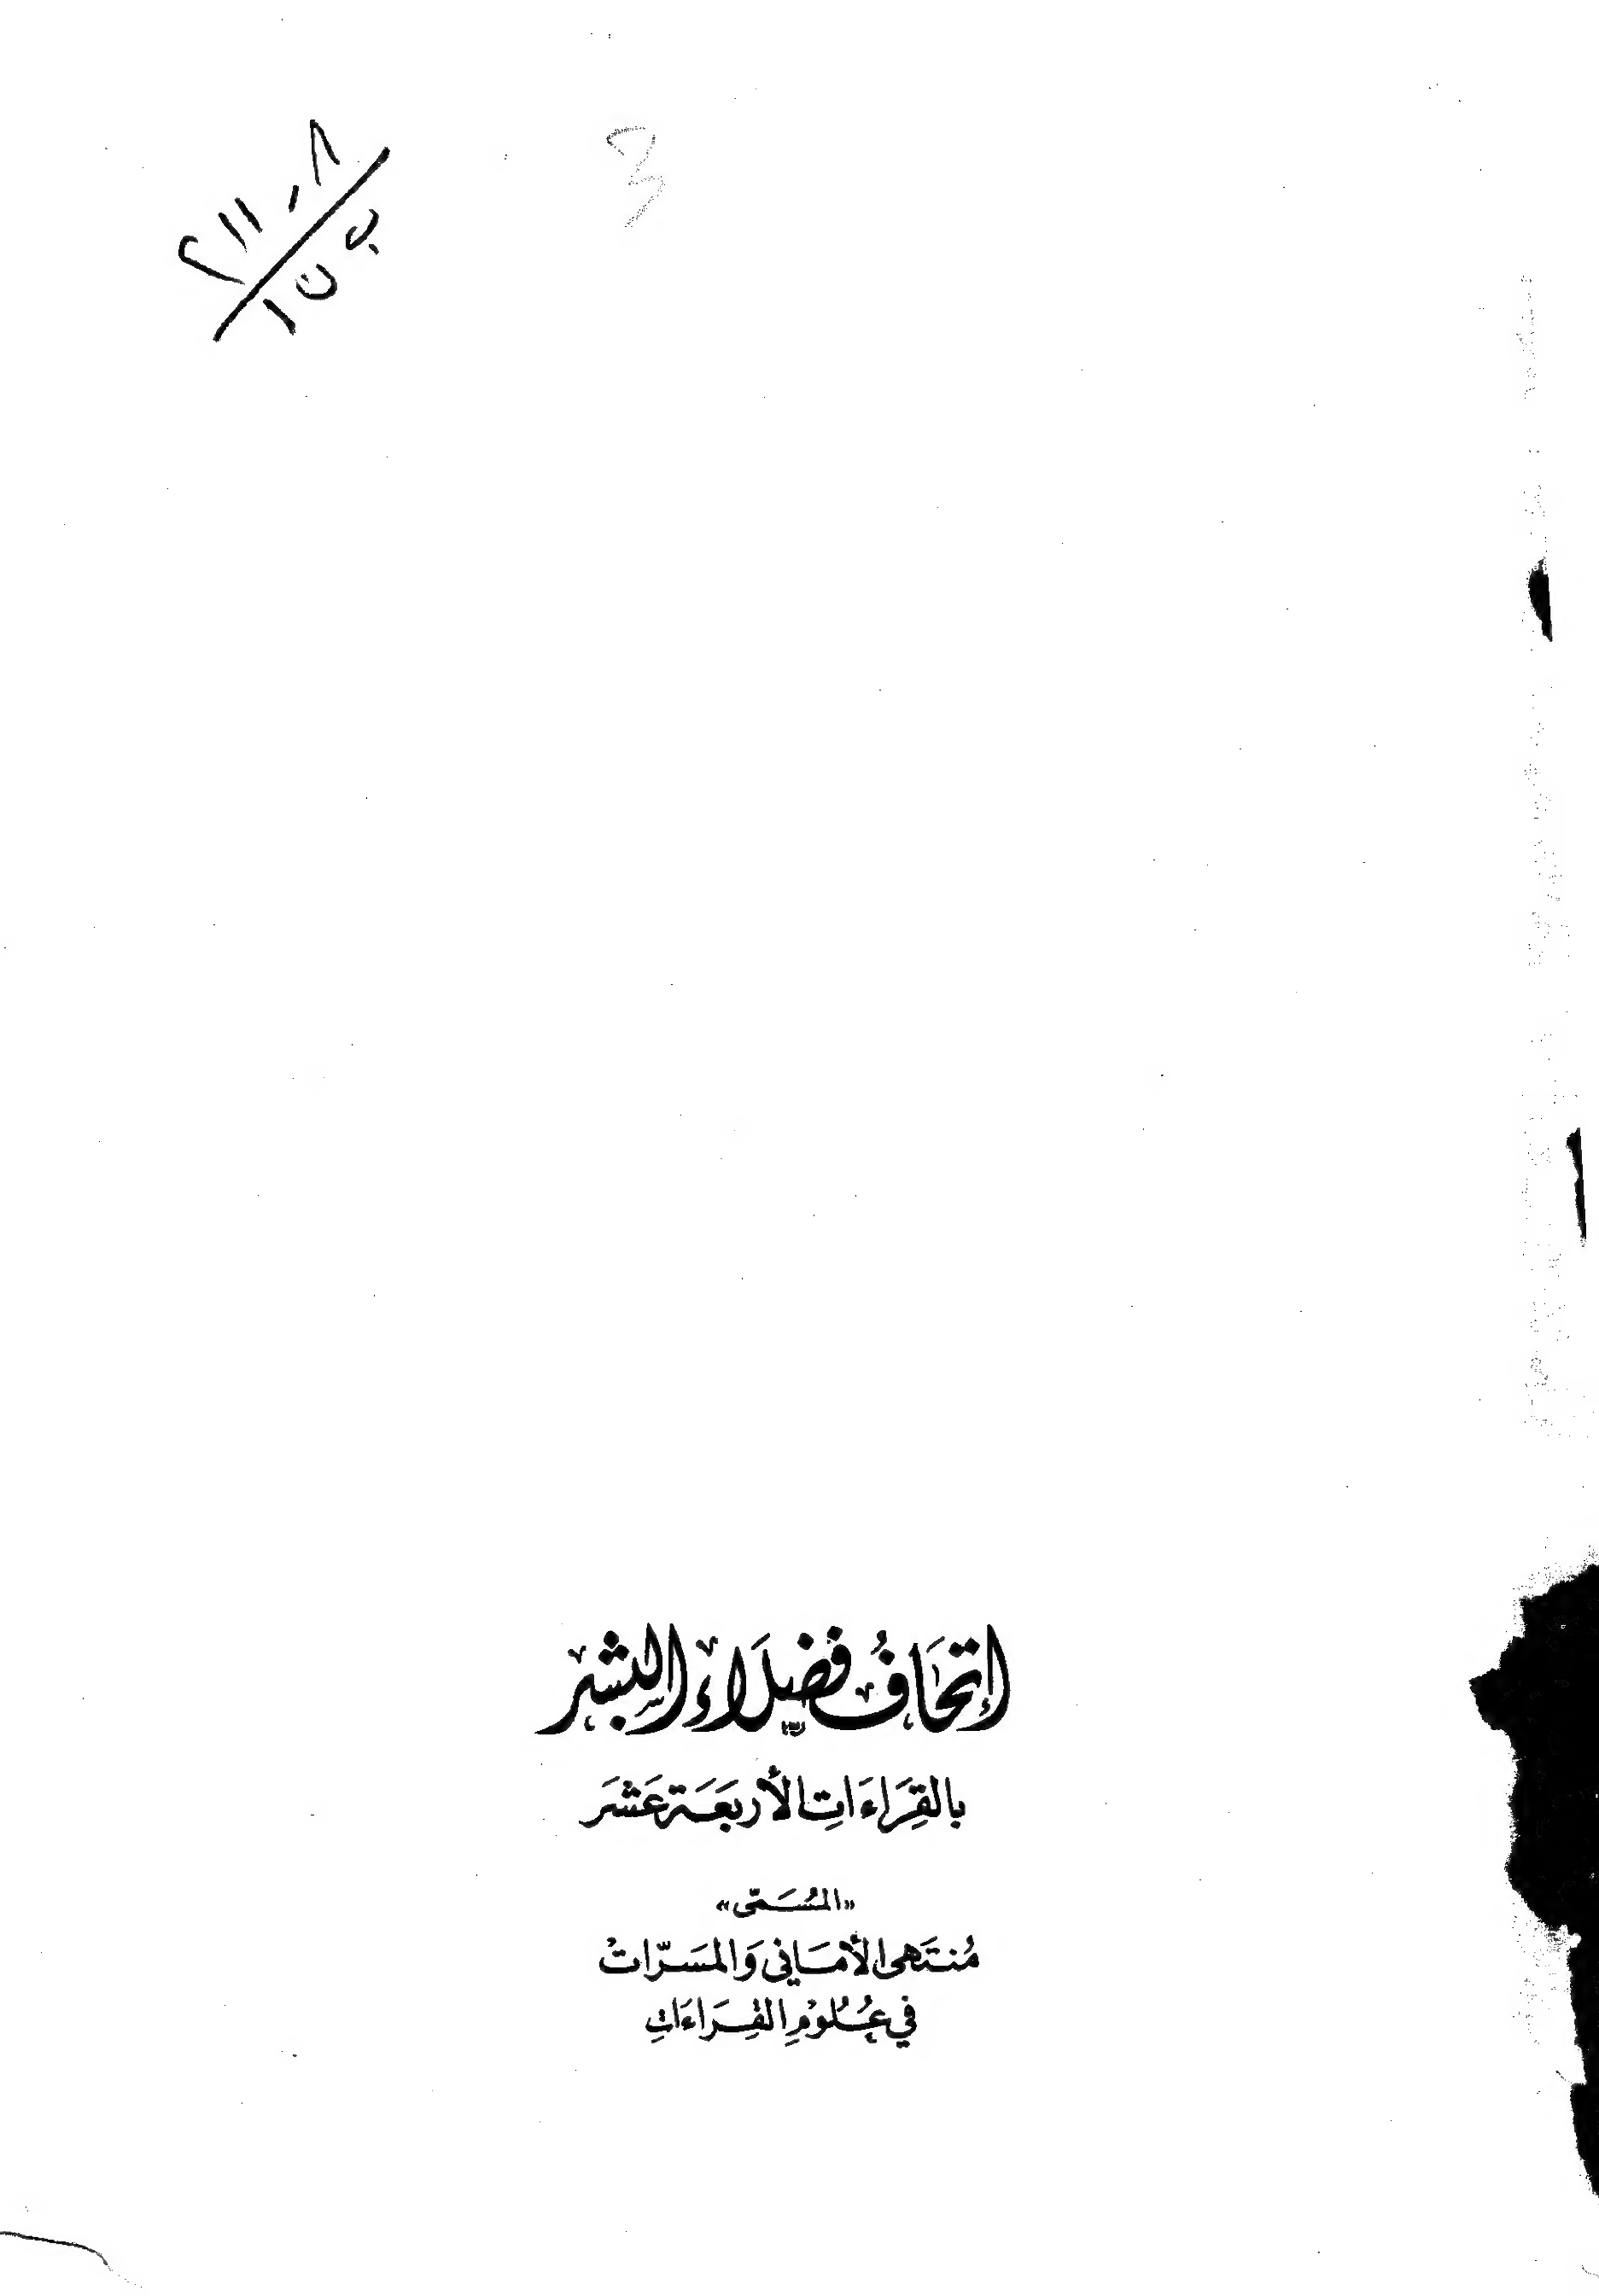 ٢١١٠٨
ب ن ا
إتحَافُ فُضَلَاءِ البَشَر
بالقِرَاءَاتِ الأربَعَة عَشَرَ
«المُسَمّى»
مُنتَهى الأمَاني وَالمَسَرّاتْ
في عُلُوْمِ القِرَاءَاتِ